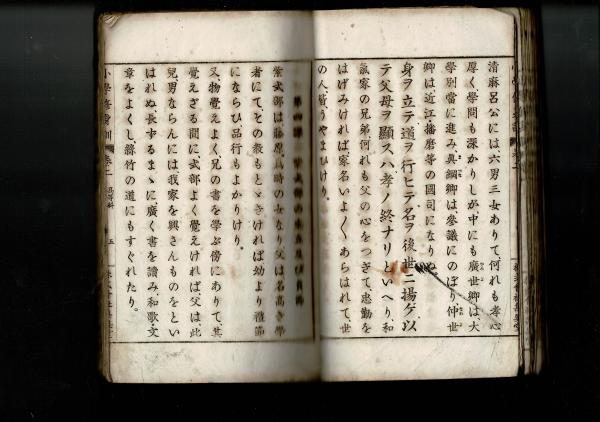 清麻呂公には六男三女ありて、何れも孝心
厚く學問も深かりしが中にも廣世卿は、大
學別當に進み、眞綱卿は參議にのぼり、仲世
卿は近江播磨等の國司になりぬ。
身ヲ立テ道ヲ行ヒテ名ヲ後世ニ揚ゲ以
テ父母ヲ顯スハ孝ノ終ナリといへり、和
氣家の兄弟、何れも父の心をつぎて、忠勤を
はげみければ、家名いよ〱あらはれて、世
の人、皆、うやまひけり。
紫式部は、藤原爲時の女なり、父は名高き學
者にて、その教もとゝきければ、幼より禮節
にならひ品行もよかりけり。
又、物覺えよく兄の書を學ぶ傍にありて、其
覺えざる間に、式部よく覺えければ、父は、此
兒、男ならんには我家を興さんものをとい
はれぬ、長ずるまゝに、廣く書を讀み、和歌、文
章をよくし、絲竹の道にもすぐれたり。
小學修身訓 卷二 五